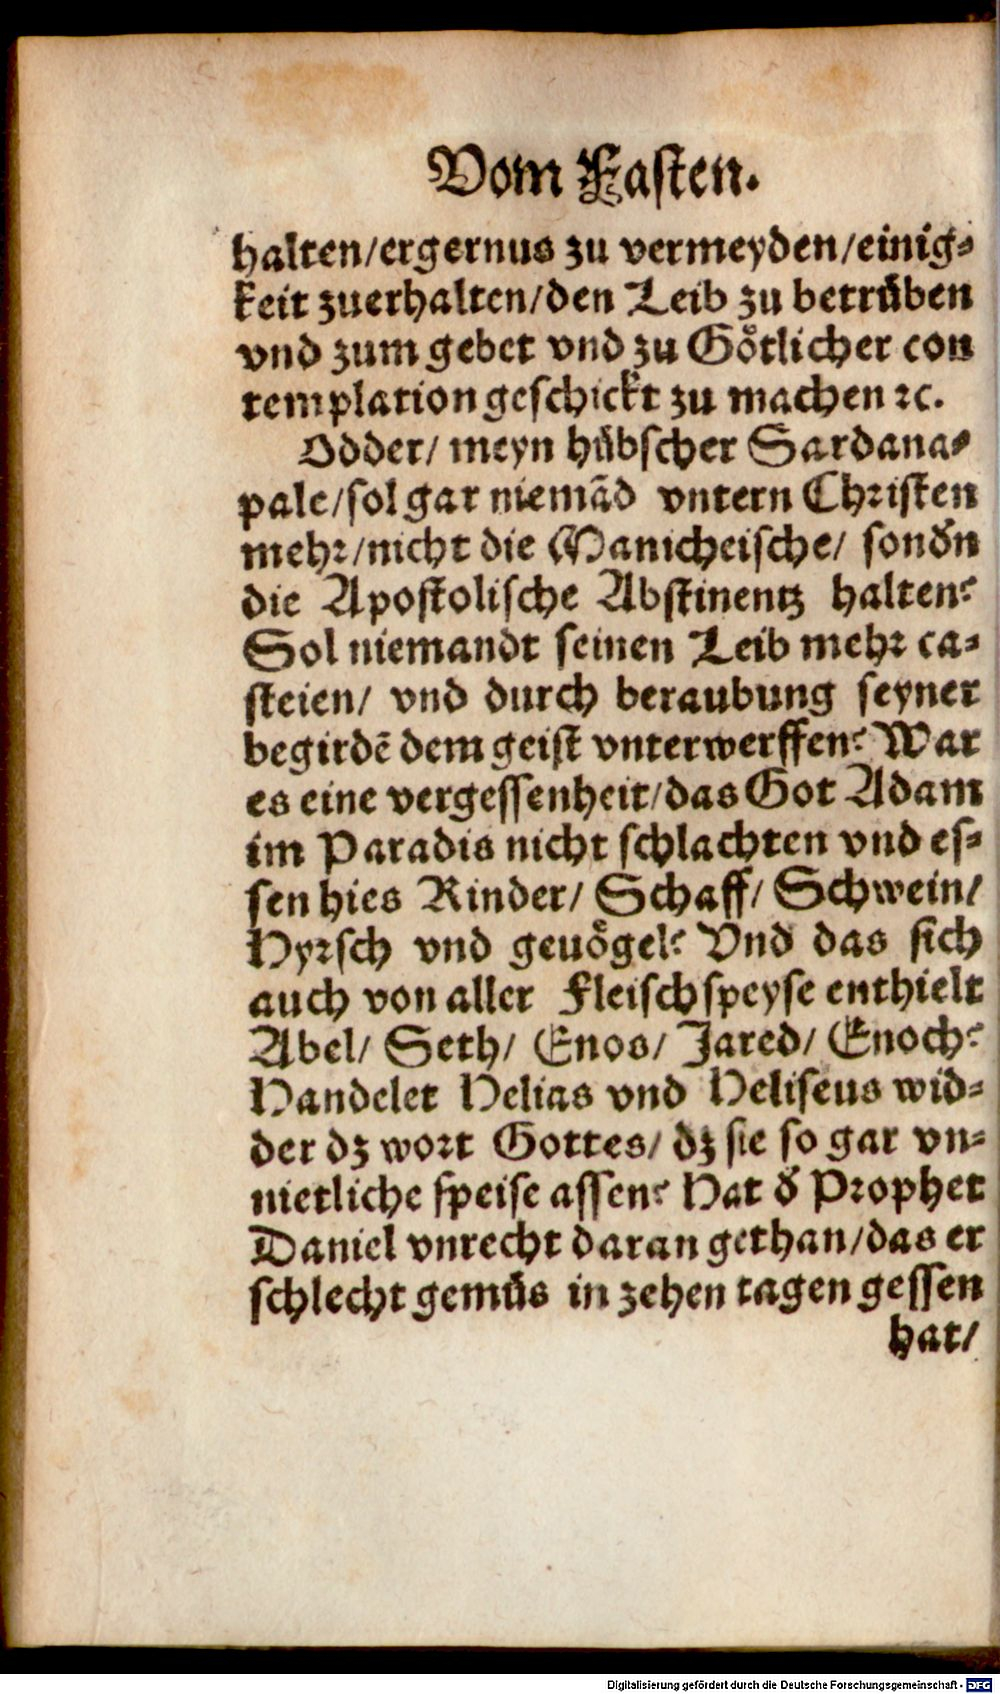 Vom Fasten.
halten/ergernus zu vermeyden/einig⸗
keit zuerhalten/den Leib zu betruͤben
vnd zum gebet vnd zu Goͤtlicher con
templation geschickt zu machen ꝛc.
Odder/ meyn huͤbscher Sardana⸗
pale/sol gar niemãd vntern Christen
mehr/nicht die Manicheische/ sonđn
die Apostolische Abstinentz halten?
Sol niemandt seinen Leib mehr ca⸗
steien/ vnd durch beraubung seyner
begirdẽ dem geist vnterwerffen? War
es eine vergessenheit/das Got Adam
im Paradis nicht schlachten vnd es⸗
sen hies Rinder/ Schaff/ Schwein/
Hyrsch vnd geuoͤgel? Vnd das sich
auch von aller Fleischspeyse enthielt
Abel/ Seth/ Enos/ Jared/ Enoch?
Handelet Helias vnd Heliseus wid⸗
der dz wort Gottes/ dz sie so gar vn⸗
nietliche speise assen? Hat đ Prophet
Daniel vnrecht daran gethan/das er
schlecht gemuͤs in zehen tagen gessen
hat/
Digitalisierung gefördert durch die Deutsche Forschungsgemeinschaft - DFG